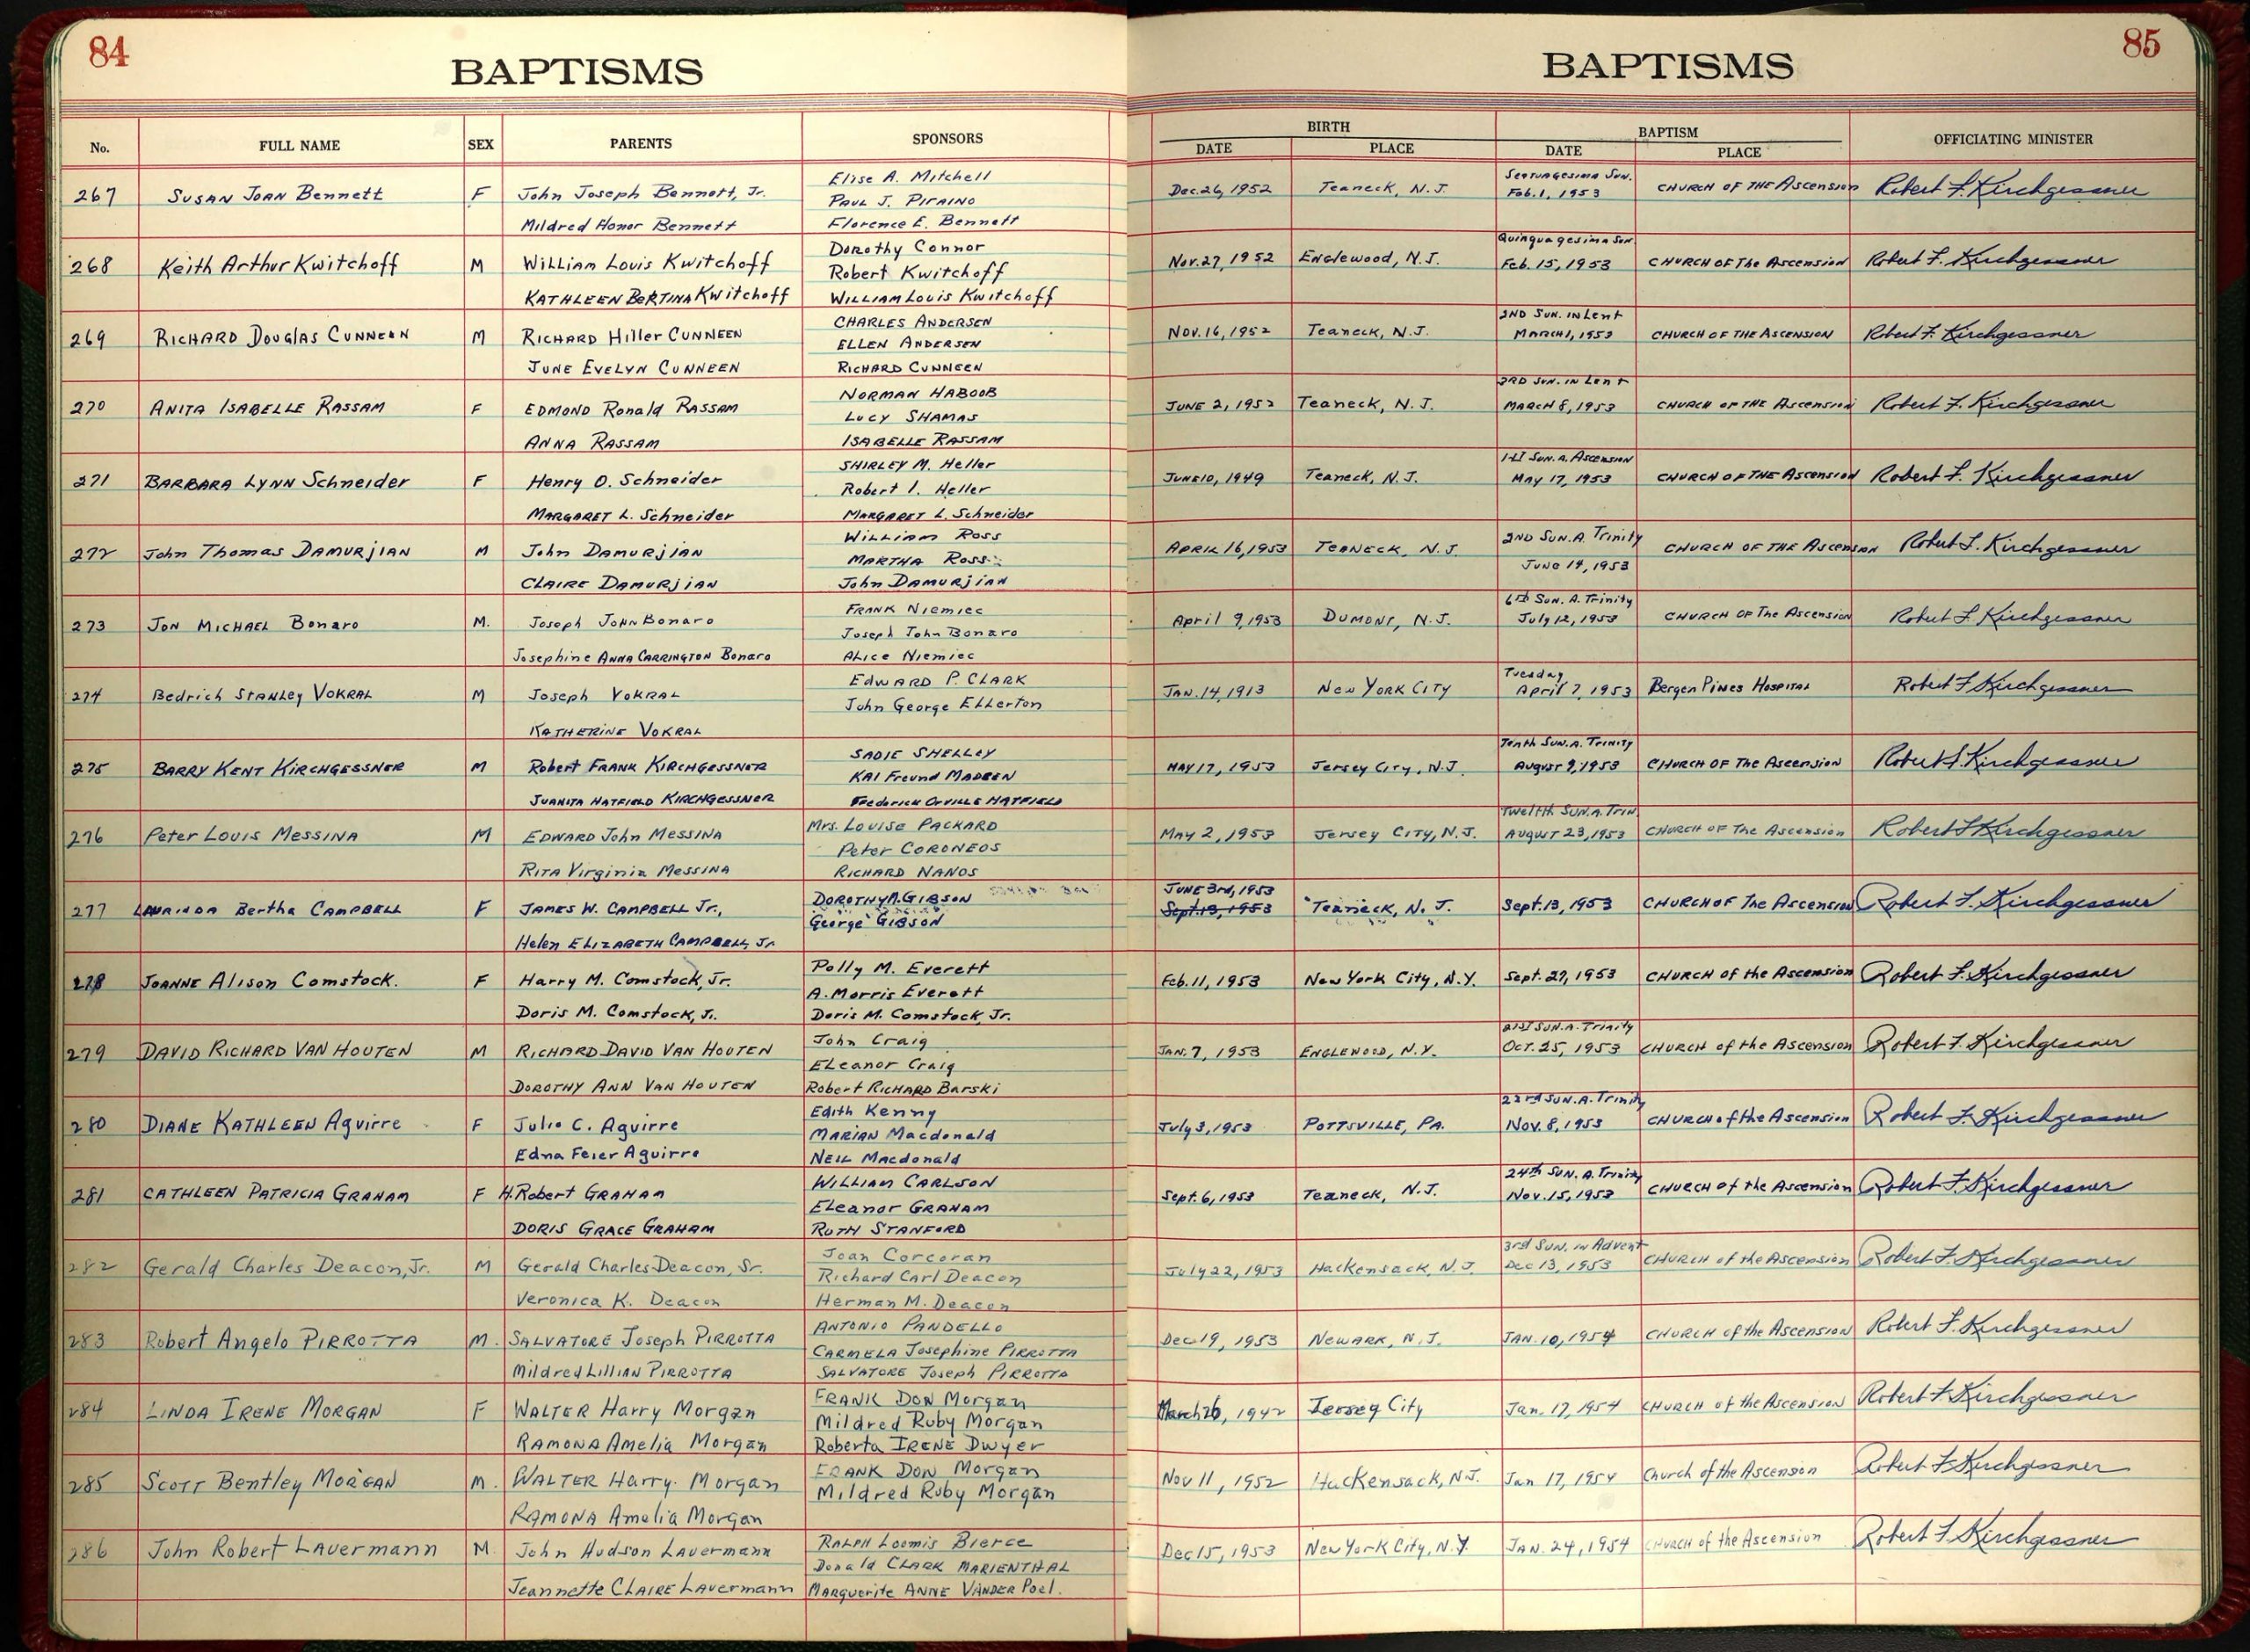 84
BAPTISMS
No. FULL NAME SEX PARENTS SPONSORS
267 SUSAN JOAN Bennett F John Joseph Bennett, Jr. Elise A. Mitchell
PAUL J. PIRAINO
Mildred Honor Bennett Florence E. Bennett
268 Keith Arthur Kwitchoff M William Louis Kwitchoff Dorothy Connor
Robert Kwitchoff
KATHLEEN BERTINA Kwitchoff WILLIAM Louis Kwitchoff
269 RICHARD DOUGLAS CUNNEEN M RICHARD Hiller CUNNEEN CHARLES ANDERSEN
ELLEN ANDERSEN
JUNE EVELYN CUNNEEN RICHARD CUNNEEN
270 ANITA ISABELLE RASSAM F EDMOND Ronald RASSAM NORMAN HABOOB
LUCY SHAMAS
ANNA RASSAM ISABELLE RASSAM
271 BARBARA LYNN Schneider F Henry O. Schneider SHIRLEY M. Heller
Robert I. Heller
MARGARET L. Schneider MARGARET L. Schneider
272 John Thomas DAMURJIAN M John DAMURJIAN William Ross
MARTHA Ross
CLAIRE DAMURJIAN John DAMURJIAN
273 JON MICHAEL Bonaro M. Joseph JOHN Bonaro FRANK Niemiec
Joseph John Bonaro
Josephine ANNA CARRINGTON Bonaro ALICE Niemiec
274 Bedrich STANLEY VOKRAL M Joseph VOKRAL EDWARD P. CLARK
John George Ellerton
KATHERINE VOKRAL
275 BARRY KENT KIRCHGESSNER M Robert FRANK KIRCHGESSNER SADIE SHELLEY
KAI Freund MADSEN
JUANITA HATFIELD KIRCHGESSNER Frederick ORVILLE HATFIELD
276 Peter LOUIS MESSINA M EDWARD John MESSINA Mrs. Louise PACKARD
Peter CORONEOS
RITA Virginia MESSINA RICHARD NANOS
277 LAURINDA Bertha CAMPBELL F JAMES W. CAMPBELL Jr., DOROTHY A. GIBSON
George GIBSON
Helen ELIZABETH CAMPBELL, Jr.
278 JOANNE Alison Comstock. F Harry M. Comstock, Jr. Polly M. Everett
A. Morris Everett
Doris M. Comstock, Jr. Doris M. Comstock, Jr.
279 DAVID RICHARD VAN HOUTEN M RICHARD DAVID VAN HOUTEN John Craig
ELeanor Craig
DOROTHY ANN VAN HOUTEN Robert RICHARD Barski
280 DIANE KATHLEEN Aguirre F Julio C. Aguirre Edith Kenny
MARIAN Macdonald
Edna Feier Aguirre NEIL Macdonald
281 CATHLEEN PATRICIA GRAHAM F H. Robert GRAHAM WILLIAM CARLSON
ELeanor GRAHAM
DORIS GRACE GRAHAM RUTH STANFORD
282 Gerald Charles Deacon, Jr. M Gerald Charles Deacon, Sr. Joan Corcoran
Richard Carl Deacon
Veronica K. Deacon Herman M. Deacon
283 Robert Angelo PIRROTTA M. SALVATORE Joseph PIRROTTA ANTONIO PANDELLO
CARMELA Josephine PIRROTTA
Mildred LILLIAN PIRROTTA SALVATORE Joseph PIRROTTA
284 LINDA IRENE MORGAN F WALTER Harry Morgan FRANK DON Morgan
Mildred Ruby Morgan
RAMONA Amelia Morgan Roberta IRENE Dwyer
285 SCOTT Bentley MORGAN M. WALTER Harry. Morgan FRANK DON Morgan
Mildred Ruby Morgan
RAMONA Amelia Morgan
286 John Robert LAuermann M John Hudson Lauermann RALPH Loomis Bierce
Donald CLARK MARIENTHAL
Jeannette CLAIRE Lauermann MARGUERITE ANNE VANDER Poel.
85
BAPTISMS
BIRTH BAPTISM OFFICIATING MINISTER
DATE PLACE DATE PLACE
Septuagesima Sun.
Dec. 26, 1952 Teaneck, N.J. Feb. 1, 1953 CHURCH OF THE Ascension Robert F. Kirchgessner
Quinquagesima Sun.
Nov. 27, 1952 Englewood, N.J. Feb. 15, 1953 CHURCH OF The Ascension Robert F. Kirchgessner
2ND SUN. IN Lent
Nov. 16, 1952 Teaneck, N.J. MARCH 1, 1953 CHURCH OF THE ASCENSION Robert F. Kirchgessner
3RD SUN. IN Lent
JUNE 2, 1952 Teaneck, N.J. MARCH 8, 1953 CHURCH OF THE Ascension Robert F. Kirchgessner
1st SUN. A. ASCENSION
JUNE 10, 1949 Teaneck, N.J. MAY 17, 1953 CHURCH OF THE ASCENSION Robert F. Kirchgessner
2ND SUN. A. Trinity
APRIL 16, 1953 TEANECK, N.J. CHURCH OF THE Ascension Robert F. Kirchgessner
June 14, 1953
6th Sun. A. Trinity
April 9, 1953 DUMONT, N.J. July 12, 1953 CHURCH OF The Ascension Robert F. Kirchgessner
Tuesday
JAN. 14, 1913 New YORK CITY April 7, 1953 Bergen PINES HOSPITAL Robert F Kirchgessner
Tenth SUN. A. TRINITY
MAY 17, 1953 Jersey City, N.J. AUGUST 9, 1953 CHURCH OF The Ascension Robert F. Kirchgessner
Twelfth SUN. A. TRIN.
MAY 2, 1953 Jersey City, N.J. AUGUST 23, 1953 CHURCH OF The Ascension Robert F Kirchgessner
JUNE 3rd, 1953
Sept. 13, 1953 Teaneck, N.J. Sept. 13, 1953 CHURCH OF The Ascension Robert F. Kirchgessner
Feb. 11, 1953 New York City, N.Y. Sept. 27, 1953 CHURCH of the Ascension Robert F. Kirchgessner
21ST SUN. A. Trinity
JAN. 7, 1953 ENGLEWOOD, N.Y. OCT. 25, 1953 CHURCH of the Ascension Robert F. Kirchgessner
22rd SUN. A. Trinity
July 3, 1953 POTTSVILLE, PA. Nov. 8, 1953 CHURCH of the Ascension Robert F. Kirchgessner
24th SUN. A. Trinity
Sept. 6, 1953 Teaneck, N.J. Nov. 15, 1953 CHURCH of the Ascension Robert F. Kirchgessner
3rd SUN. in Advent
July 22, 1953 Hackensack, N.J. Dec 13, 1953 CHURCH of the Ascension Robert F. Kirchgessner
Dec 19, 1953 NEWARK, N.J. JAN. 10, 1954 CHURCH of the Ascension Robert F. Kirchgessner
March 26, 1942 Jersey City Jan. 17, 1954 CHURCH of the Ascension Robert F. Kirchgessner
Nov 11, 1952 Hackensack, N.J. Jan 17, 1954 Church of the Ascension Robert F. Kirchgessner
Dec 15, 1953 New York City, N.Y. JAN. 24, 1954 CHURCH of the Ascension Robert F. Kirchgessner